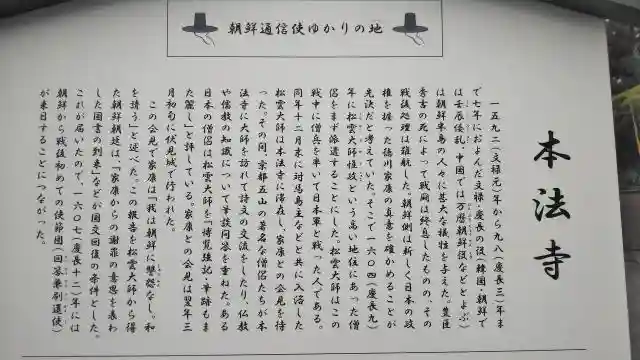 朝鮮通信使ゆかりの地
本法寺
一五九二(文禄元)年から九八(慶長三)年ま
で七年におよんだ文禄・慶長の役(韓国・朝鮮で
は壬辰倭乱、中国では万暦朝鮮役などとよぶ)
は朝鮮半島の人々に甚大な犠牲を与えた。豊臣
秀吉の死によって戦闘は終息したものの、その
戦後処理は難航した。朝鮮側は新しく日本の政
権を握った徳川家康の真意を確かめることが
先決だと考えていた。そこで一六〇四(慶長九)
年に松雲大師惟政という高い地位にあった僧
侶をまず派遣することにした。松雲大師はこの
戦中に僧兵を率いて日本軍と戦った人である。
同年十二月末に対馬島主などと共に入洛した
松雲大師は本法寺に滞在し、家康との会見を待
った。その間、京都五山の著名な僧侶たちが本
法寺に大師を訪れて詩文の交流をしたり、仏教
や儒教の知識について筆談問答を重ねた。ある
日本の僧侶は松雲大師を「博覧強記・筆跡もま
た麗し」と評している。家康との会見は翌年三
月初旬に伏見城で行われた。
この会見で家康は「我は朝鮮に讐怨なし。和
を請う」と述べた。この報告を松雲大師から得
た朝鮮朝廷は、「家康からの謝罪の意思を表わ
した国書の到来」などが国交回復の条件とした。
これが届いたので、一六〇七(慶長十二)年には
朝鮮から戦後初めての使節団(回答兼刷還使)
が来日することにつながった。